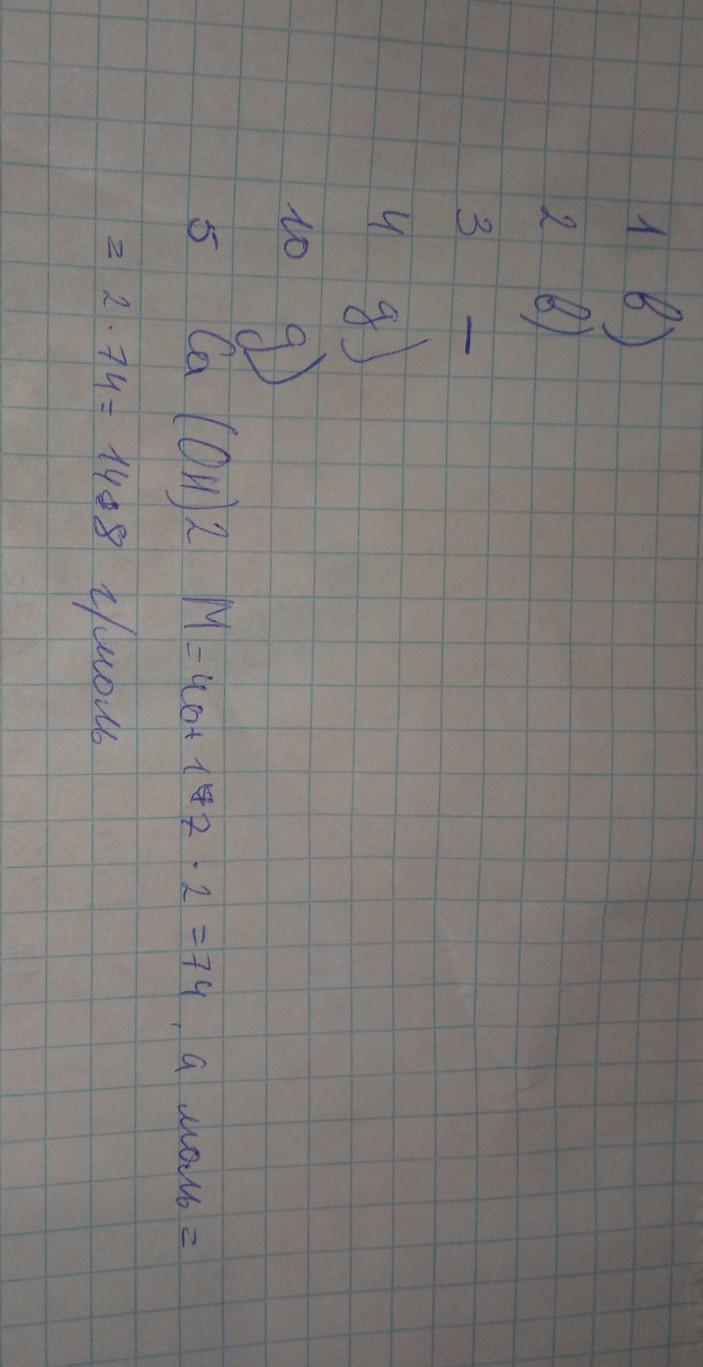 1 в)
2 в)
3 –
4 д)
10 д)
5 Ca (OH)2 M = 40 + 17 · 2 = 74, а моль =
= 2 · 74 = 148 г/моль